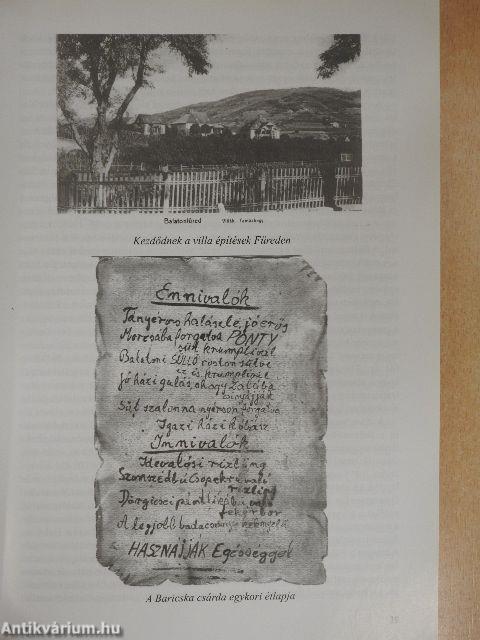 Balatonfüred Villák Tamáshegy
Kezdődnek a villa építések Füreden
Ennivalók
Tányéros halászlé, jó erős
Morzsába forgatva PONTY
sült krumplival
Balatoni SÜLLŐ roston sütve
ez is krumplival
Jó házi gulás, ahogy Zalába
Sült szalonna nyárson forgatva
Igazi házi kolbász
Innivalók
Idevalósi rizling
Szomszédbú Csopakrú való
rizling
Dörgicsei
fehérbor
A legjobb badacsonyi
HASZNÁJJÁK Egésséggel
A Baricska csárda egykori étlapja
19
Antikvárium.hu